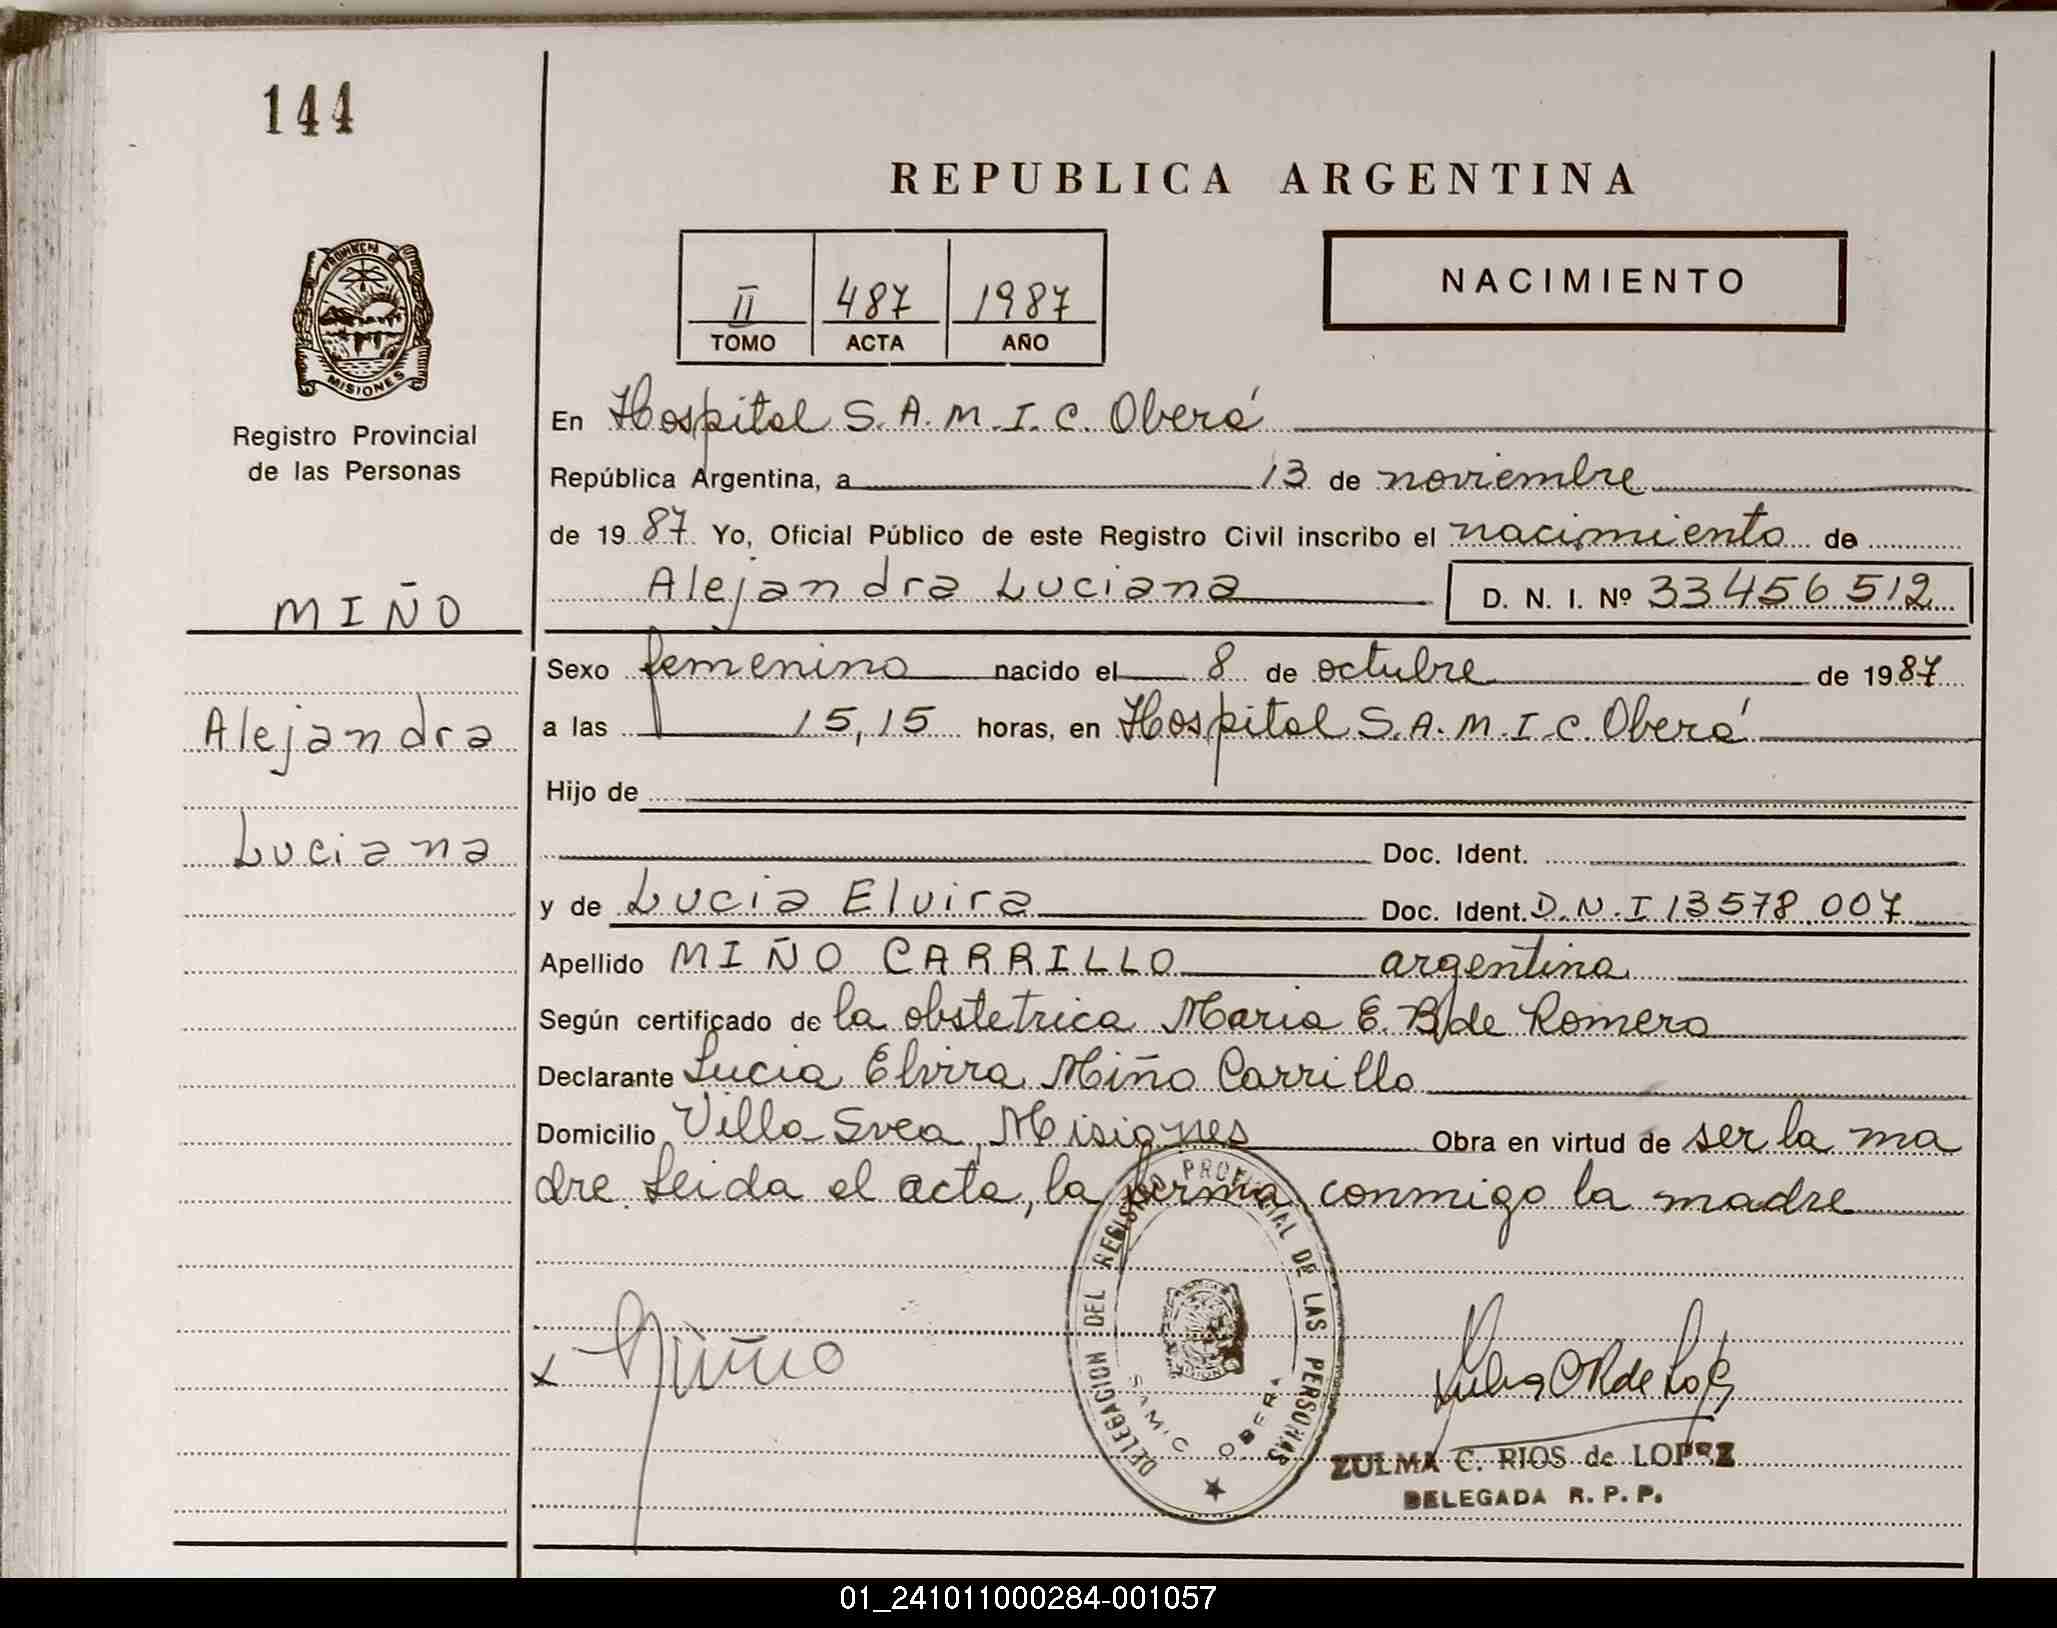 144
REPUBLICA ARGENTINA
II 487 1987
TOMO ACTA AÑO
NACIMIENTO
PROVINCIA DE
MISIONES
Registro Provincial
de las Personas
MIÑO
Alejandra
Luciana
En Hospital S.A.M.I.C. Oberá
República Argentina, a 13 de noviembre
de 1987 Yo, Oficial Público de este Registro Civil inscribo el nacimiento de
Alejandra Luciana D. N. I. Nº 33456512
Sexo femenino nacido el 8 de octubre de 1987
a las 15,15 horas, en Hospital S.A.M.I.C. Oberá
Hijo de
Doc. Ident.
y de Lucia Elvira Doc. Ident. D.N.I 13578.007
Apellido MIÑO CARRILLO argentina
Según certificado de la obstetrica Maria E. B de Romero
Declarante Lucia Elvira Miño Carrillo
Domicilio Villa Svea, Misiones Obra en virtud de ser la ma
dre. Leida el acta, la firma conmigo la madre
DELEGACION DEL REGISTRO PROVINCIAL DE LAS PERSONAS
SAMIC OBERA
x Miño
ZULMA C. RIOS de LOPEZ
DELEGADA R. P. P.
01_241011000284-001057